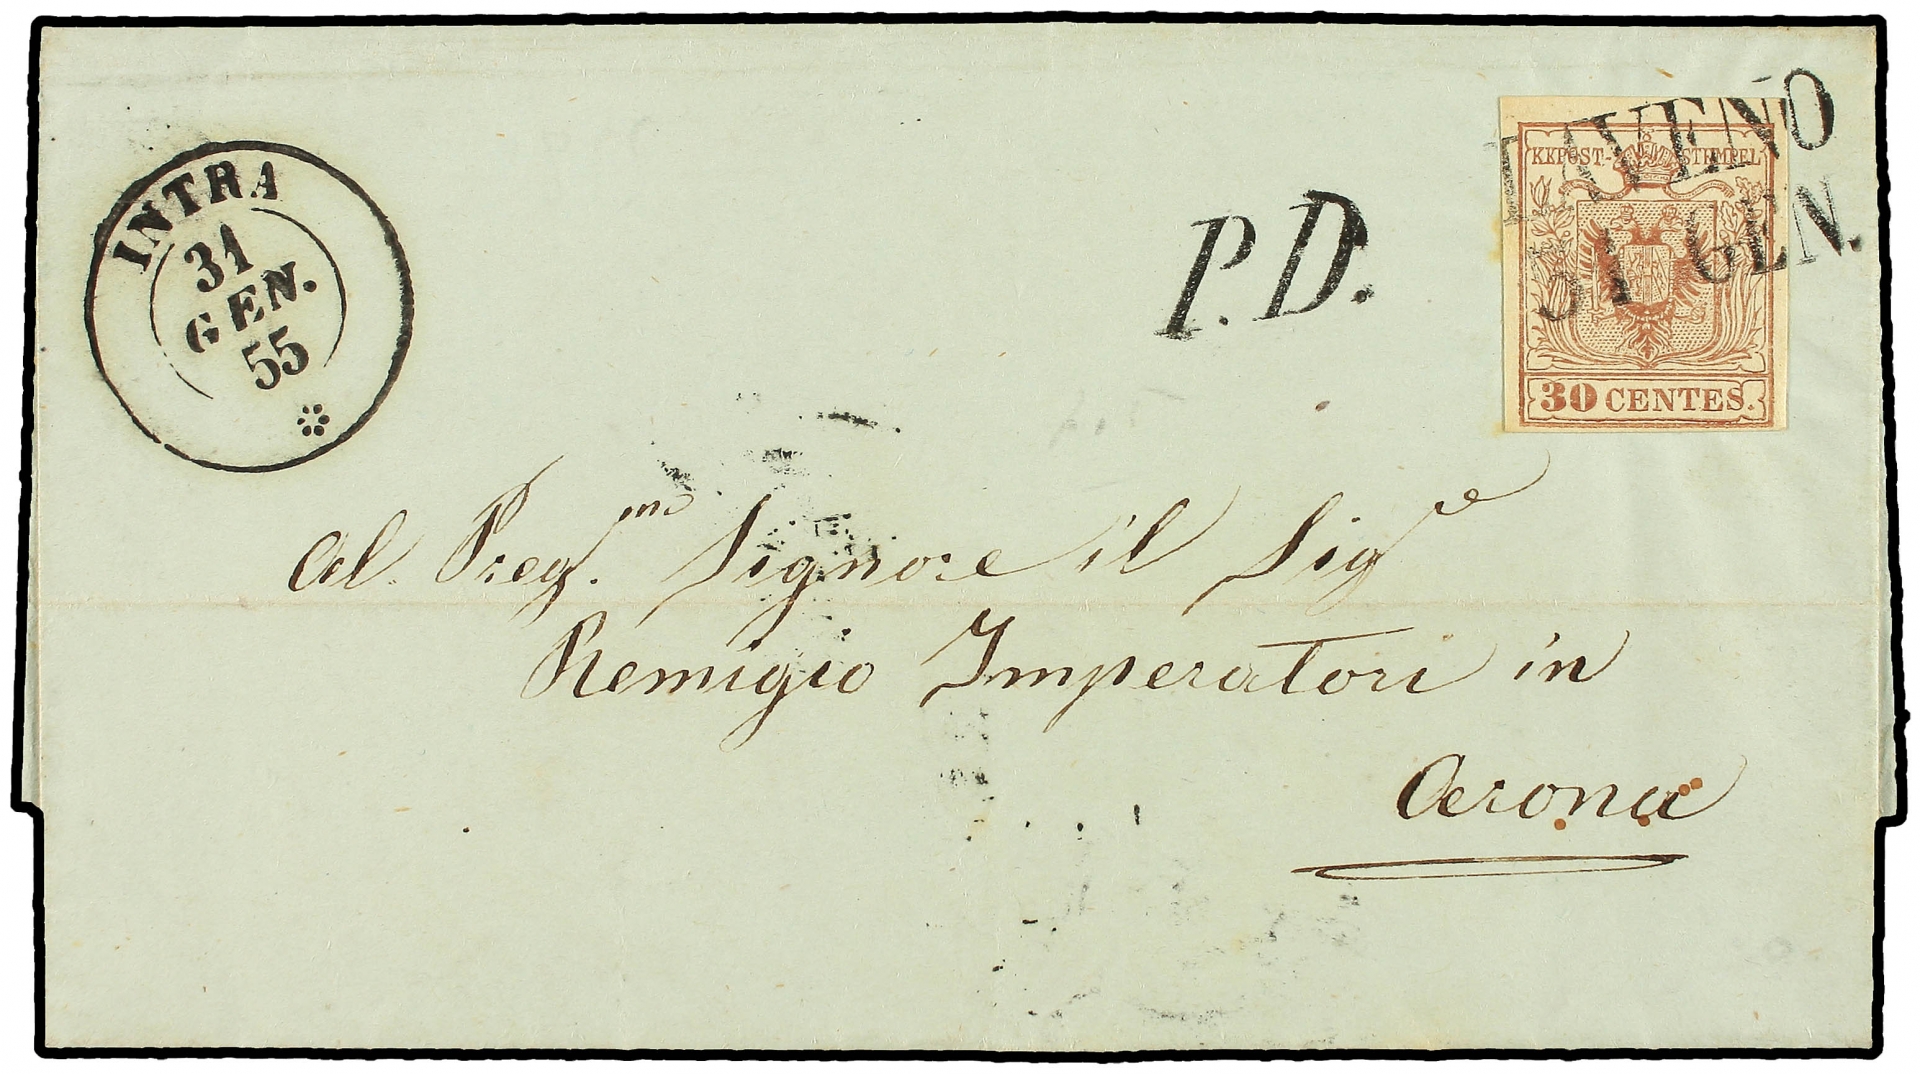 INTRA
31
GEN.
55
P.D.
LAVENO
31 GEN.
KKPOST-STEMPEL
30 CENTES.
Al Preg.mo Signore il Sige
Remigio Imperatori in
Arona